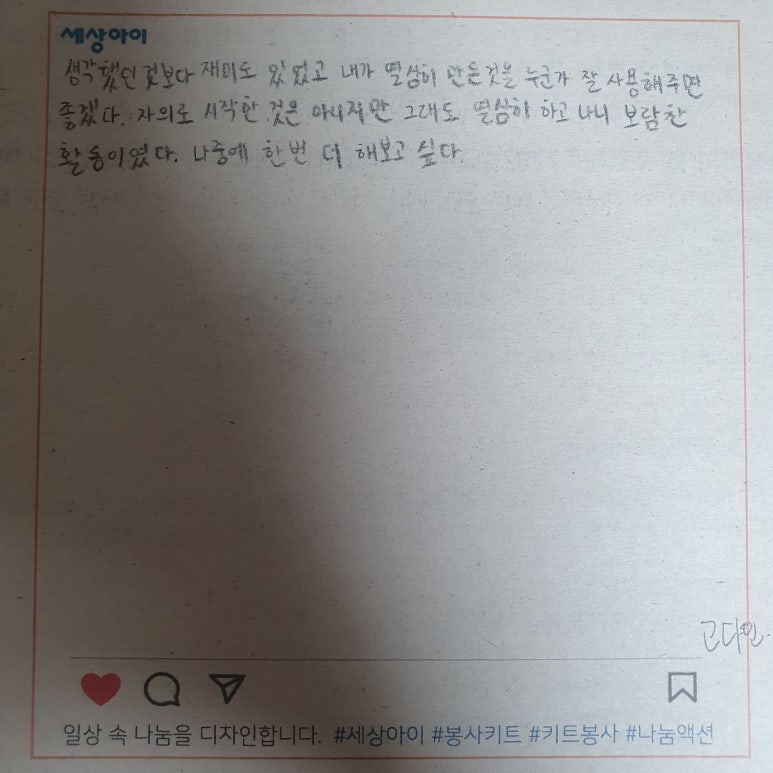 세상아이
생각했던것보다 재미도 있었고 내가 열심히 만든것을 누군가 잘 사용해주면
좋겠다. 자의로 시작한 것은 아니지만 그래도 열심히 하고 나니 보람찬
활동이였다. 나중에 한번 더 해보고 싶다.
고다인
일상 속 나눔을 디자인합니다. #세상아이 #봉사키트 #키트봉사 #나눔액션